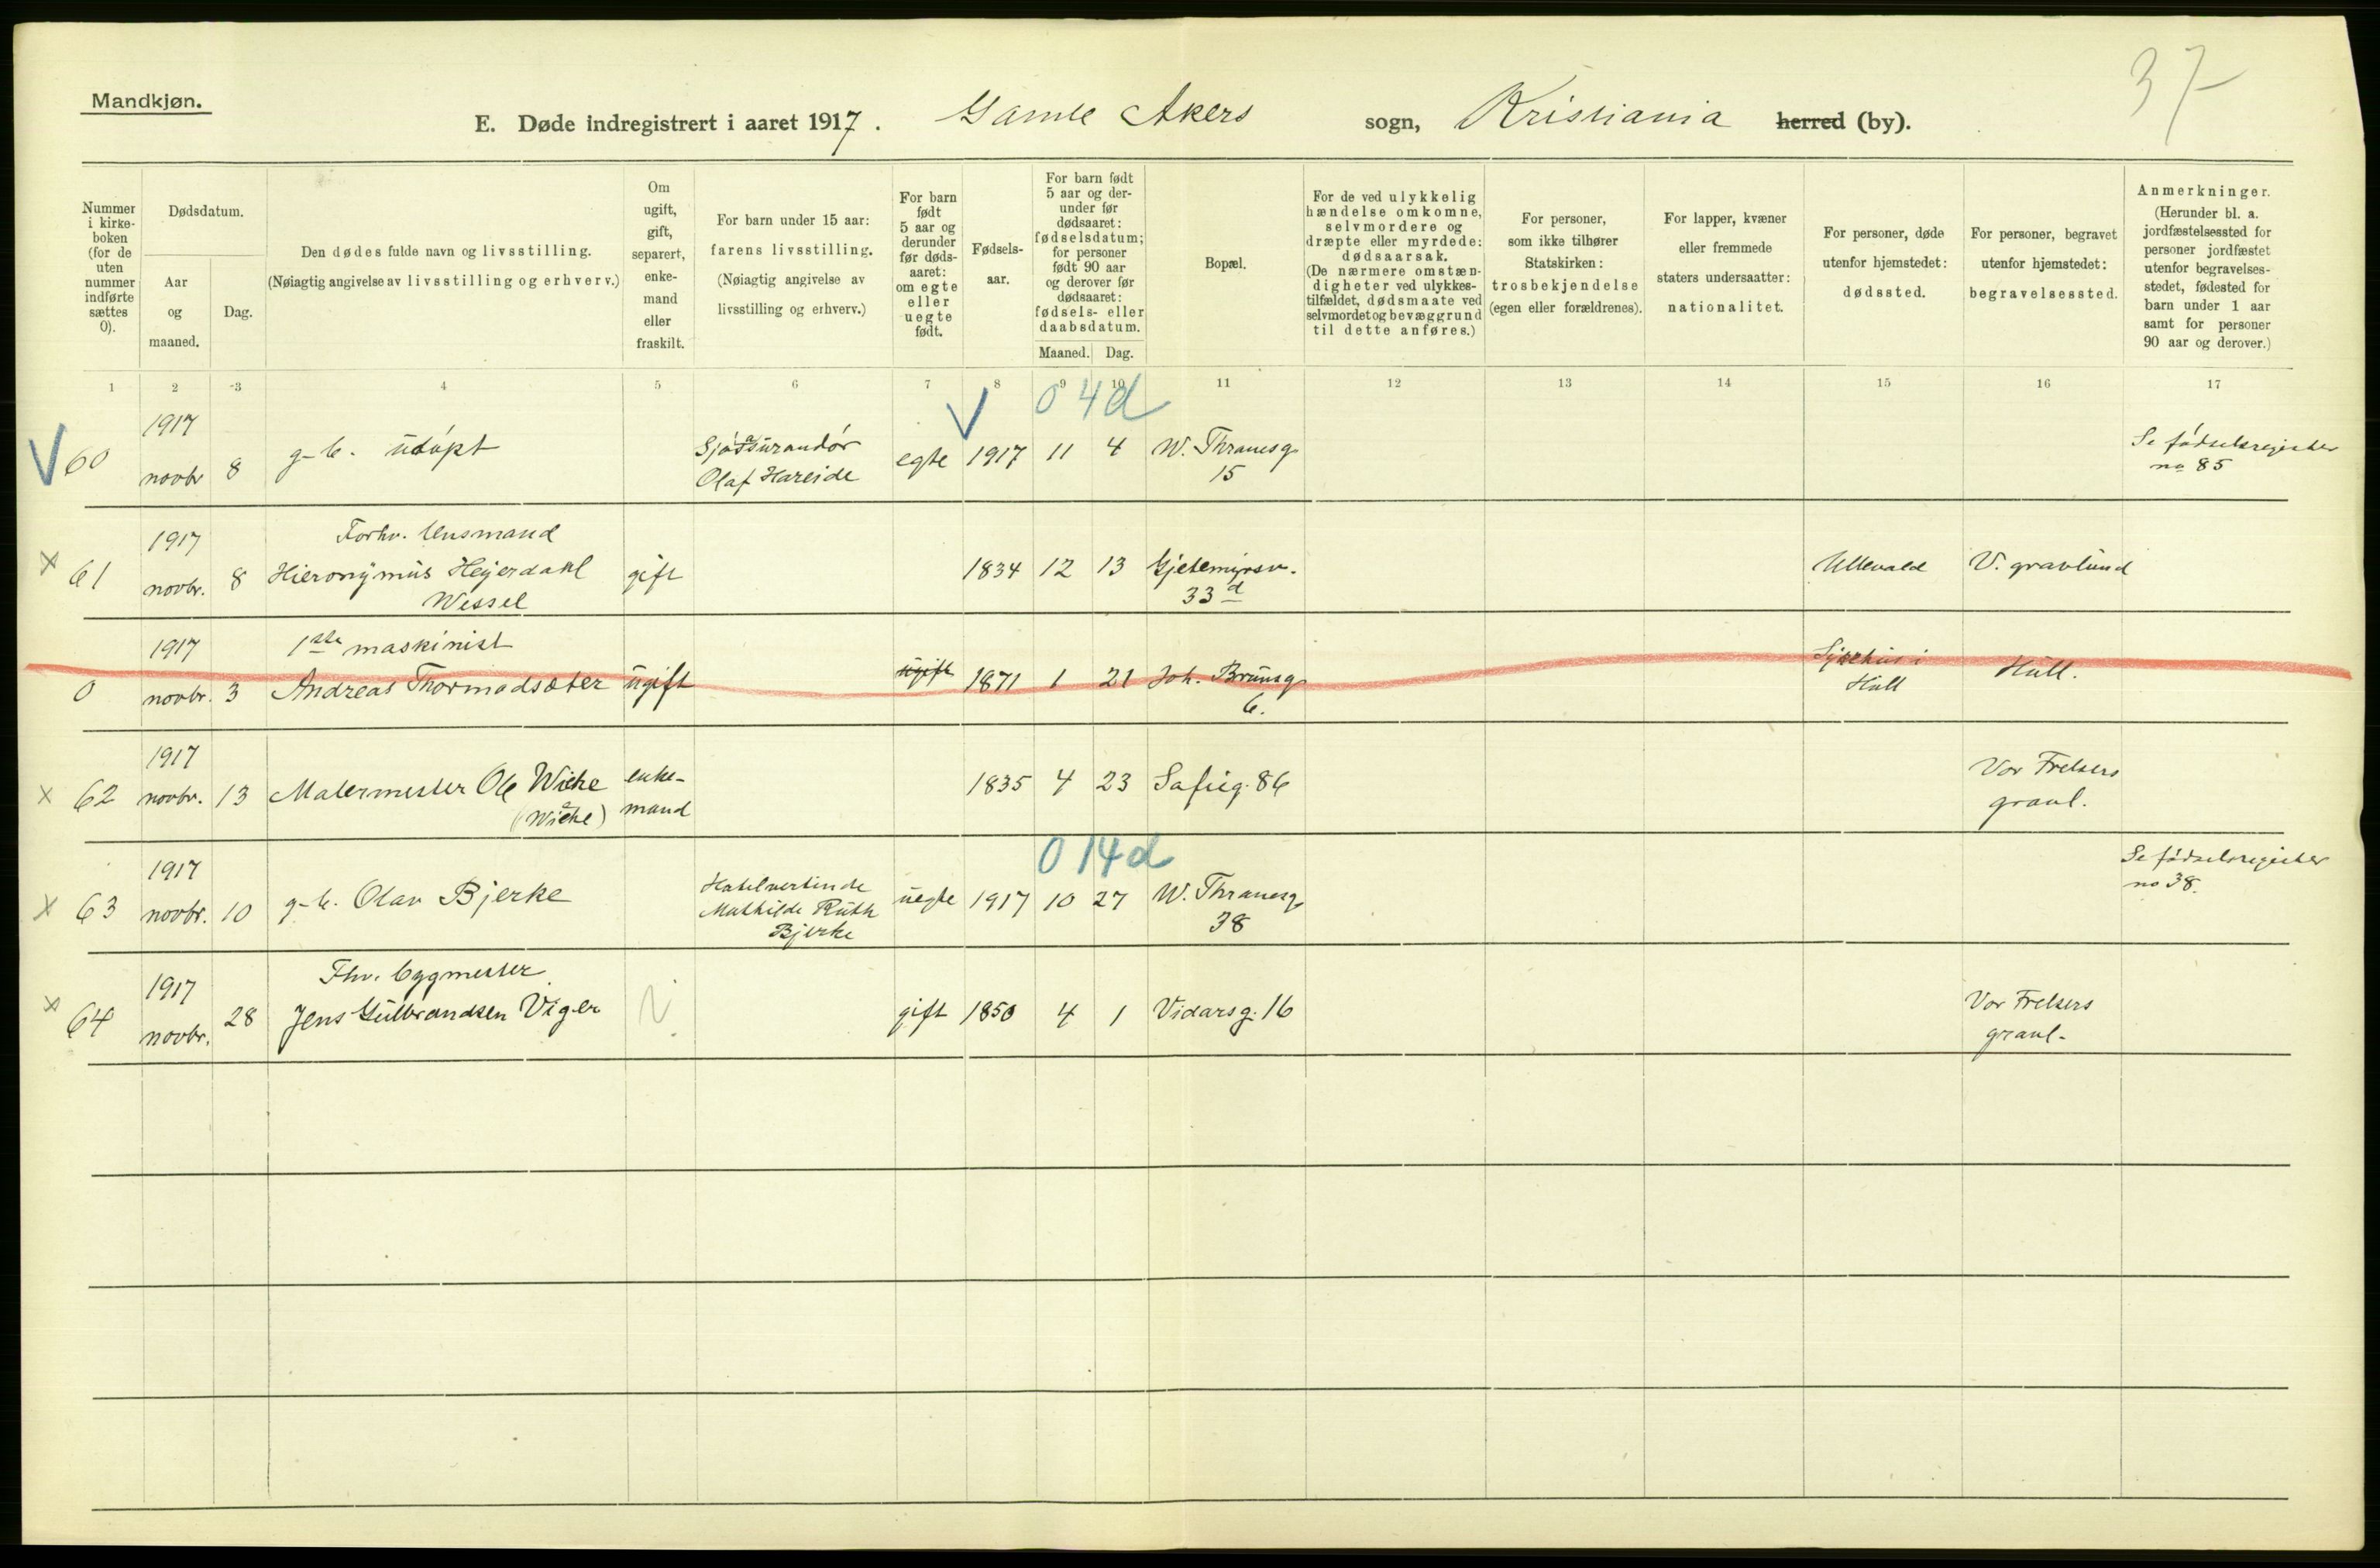 37
Mandkjøn.
E. Døde indregistrert i aaret 1917. Gamle Akers sogn, Kristiania herred (by).
Nummer i kirke-boken (for de uten nummer indførte sættes 0).
Dødsdatum.
Aar og maaned.
Dag.
Den dødes fulde navn og livsstilling.
(Nøiagtig angivelse av livsstilling og erhverv.)
Om ugift, gift, separert, enke-mand eller fraskilt.
For barn under 15 aar:
farens livsstilling.
(Nøiagtig angivelse av livsstilling og erhverv.)
For barn født 5 aar og derunder før døds-aaret: om egte eller uegte født.
Fødsels-aar.
For barn født 5 aar og der-under før dødsaaret: fødselsdatum; for personer født 90 aar og derover før dødsaaret: fødsels- eller daabsdatum.
Maaned. Dag.
Bopæl.
For de ved ulykkelig hændelse omkomne, selvmordere og dræpte eller myrdede: dødsaarsak.
(De nærmere omstæn-digheter ved ulykkes-tilfældet, dødsmaate ved selvmordet og bevæggrund til dette anføres.)
For personer, som ikke tilhører Statskirken: trosbekjendelse (egen eller forældrenes).
For lapper, kvæner eller fremmede staters undersaatter: nationalitet.
For personer, døde utenfor hjemstedet: dødssted.
For personer, begravet utenfor hjemstedet: begravelsessted.
Anmerkninger.
(Herunder bl. a. jordfæstelsessted for personer jordfæstet utenfor begravelses-stedet, fødested for barn under 1 aar samt for personer 90 aar og derover.)
1 2 3 4 5 6 7 8 9 10 11 12 13 14 15 16 17
0 4 d
V 60 1917 novbr 8 g-b. udøpt Olaf Hareide egte 1917 11 4 W. Thranesg 15 Se fødselsregister no 85
x 61 1917 novbr. 8 Forhv. lensmand Hieronymus Heyerdahl Wessel gift 1834 12 13 Gjetemyrsv. 33 d Ullevold V. gravlund
0 1917 novbr. 3 1ste maskinist Andreas Thormodsæter ugift ugift 1871 1 21 Joh. Brunsg 6. Sykehus i Hull Hull.
x 62 1917 novbr. 13 Malermester Ole Wiche (Wiche) enke-mand 1835 4 23 Sofieg. 86 Vor Frelsers gravl.
0 14 d
x 63 1917 novbr. 10 g-b. Olav Bjerke Mathilde Ruth Bjerke uegte 1917 10 27 W. Thranesg 38 Se fødselsregister no 38.
x 64 1917 novbr. 28 Fhv. bygmester Jens Gulbrandsen Viger gift 1850 4 1 Vidarsg. 16 Vor Frelsers gravl.